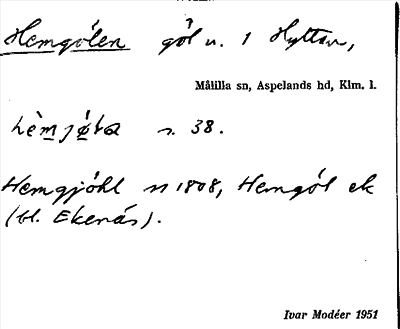 Hemgölen göl n. 1 Hyttan,
Målilla sn, Aspelands hd, Klm. l.
n. 38.
Hemgjöhl n 1808, Hemgöl ek
(bl. Ekenäs).
Ivar Modéer 1951